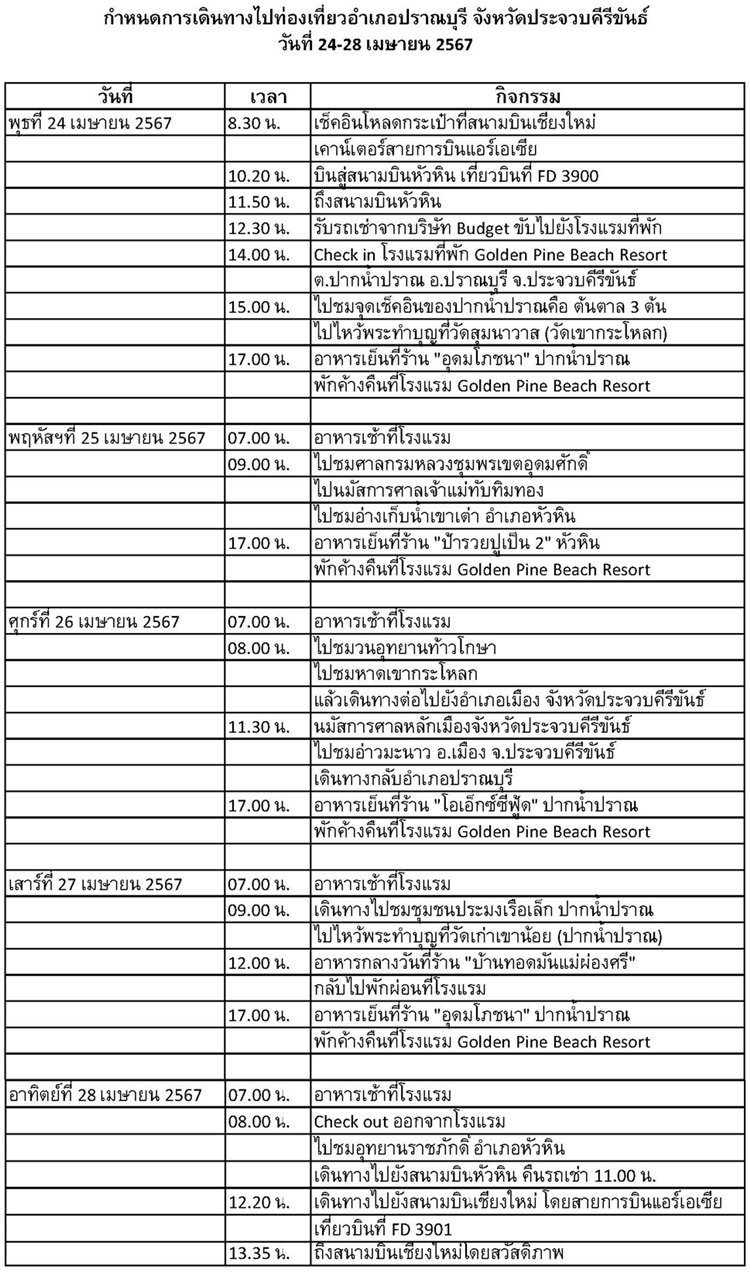 กำหนดการเดินทางไปท่องเที่ยวอำเภอปราณบุรี จังหวัดประจวบคีรีขันธ์
วันที่ 24-28 เมษายน 2567
วันที่ เวลา กิจกรรม
พุธที่ 24 เมษายน 2567 8.30 น. เช็คอินโหลดกระเป๋าที่สนามบินเชียงใหม่
เคาน์เตอร์สายการบินแอร์เอเซีย
10.20 น. บินสู่สนามบินหัวหิน เที่ยวบินที่ FD 3900
11.50 น. ถึงสนามบินหัวหิน
12.30 น. รับรถเช่าจากบริษัท Budget ขับไปยังโรงแรมที่พัก
14.00 น. Check in โรงแรมที่พัก Golden Pine Beach Resort
ต.ปากน้ำปราณ อ.ปราณบุรี จ.ประจวบคีรีขันธ์
15.00 น. ไปชมจุดเช็คอินของปากน้ำปราณคือ ต้นตาล 3 ต้น
ไปไหว้พระทำบุญที่วัดสุมนาวาส (วัดเขากระโหลก)
17.00 น. อาหารเย็นที่ร้าน "อุดมโภชนา" ปากน้ำปราณ
พักค้างคืนที่โรงแรม Golden Pine Beach Resort
พฤหัสฯที่ 25 เมษายน 2567 07.00 น. อาหารเช้าที่โรงแรม
09.00 น. ไปชมศาลกรมหลวงชุมพรเขตอุดมศักดิ์
ไปนมัสการศาลเจ้าแม่ทับทิมทอง
ไปชมอ่างเก็บน้ำเขาเต่า อำเภอหัวหิน
17.00 น. อาหารเย็นที่ร้าน "ป้ารวยปูเป็น 2" หัวหิน
พักค้างคืนที่โรงแรม Golden Pine Beach Resort
ศุกร์ที่ 26 เมษายน 2567 07.00 น. อาหารเช้าที่โรงแรม
08.00 น. ไปชมวนอุทยานท้าวโกษา
ไปชมหาดเขากระโหลก
แล้วเดินทางต่อไปยังอำเภอเมือง จังหวัดประจวบคีรีขันธ์
11.30 น. นมัสการศาลหลักเมืองจังหวัดประจวบคีรีขันธ์
ไปชมอ่าวมะนาว อ.เมือง จ.ประจวบคีรีขันธ์
เดินทางกลับอำเภอปราณบุรี
17.00 น. อาหารเย็นที่ร้าน "โอเอ็กซ์ซีฟู้ด" ปากน้ำปราณ
พักค้างคืนที่โรงแรม Golden Pine Beach Resort
เสาร์ที่ 27 เมษายน 2567 07.00 น. อาหารเช้าที่โรงแรม
09.00 น. เดินทางไปชมชุมชนประมงเรือเล็ก ปากน้ำปราณ
ไปไหว้พระทำบุญที่วัดเก่าเขาน้อย (ปากน้ำปราณ)
12.00 น. อาหารกลางวันที่ร้าน "บ้านทอดมันแม่ผ่องศรี"
กลับไปพักผ่อนที่โรงแรม
17.00 น. อาหารเย็นที่ร้าน "อุดมโภชนา" ปากน้ำปราณ
พักค้างคืนที่โรงแรม Golden Pine Beach Resort
อาทิตย์ที่ 28 เมษายน 2567 07.00 น. อาหารเช้าที่โรงแรม
08.00 น. Check out ออกจากโรงแรม
ไปชมอุทยานราชภักดิ์ อำเภอหัวหิน
เดินทางไปยังสนามบินหัวหิน คืนรถเช่า 11.00 น.
12.20 น. เดินทางไปยังสนามบินเชียงใหม่ โดยสายการบินแอร์เอเซีย
เที่ยวบินที่ FD 3901
13.35 น. ถึงสนามบินเชียงใหม่โดยสวัสดิภาพ